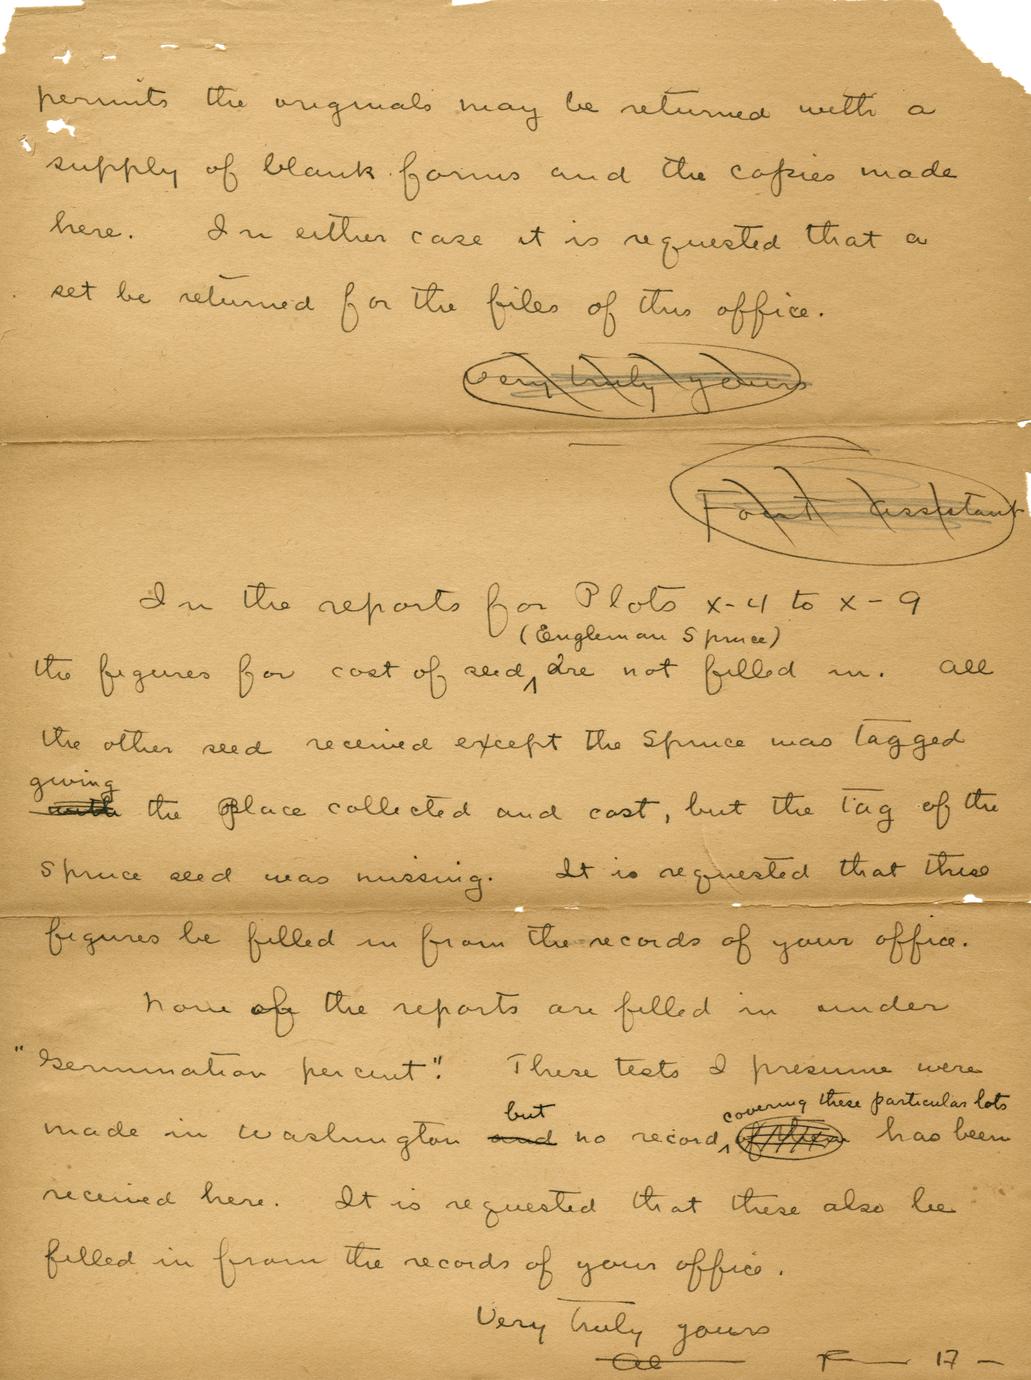 permits the originals may be returned with a
supply of blank forms and the copies made
here. In either case it is requested that a
set be returned for the files of this office.
Very truly yours
Forest Assistant
In the reports for Plots x-4 to x-9
(Engleman Spruce)
the figures for cost of seed are not filled in. All
the other seed received except the Spruce was tagged
giving
with the place collected and cost, but the tag of the
Spruce seed was missing. It is requested that these
figures be filled in from the records of your office.
None of the reports are filled in under
"Germination percent". These tests I presume were
but covering these particular lots
made in Washington and no record of them has been
received here. It is requested that these also be
filled in from the records of your office.
Very truly yours
17 -